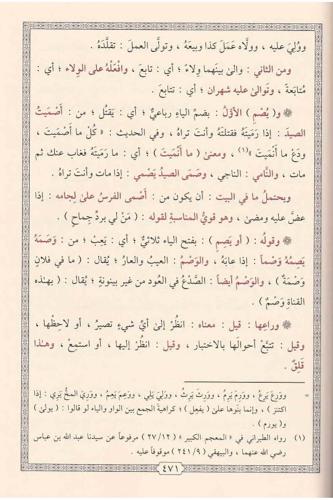 ووُلِيَ عليه ، وولَّاه عَمَلَ كذا وبيعَهُ ، وتولَّى العملَ : تقلَّدَهُ .
ومن الثاني : والىٰ بينَهما وِلاءً ؛ أي : تابعَ ، وافْعَلْهُ على الوِلاء ؛ أي :
مُتابَعةً ، وتَوالىٰ عليه شهران ؛ أي : تتابعَ .
❁ و( يُصْمِ ) الأوَّلُ : بضم الياء رباعيٌّ ؛ أي : يَقتُل ؛ من : أَصْمَيتُ
الصيدَ : إذا رَمَيتَهُ فقتلتَهُ وأنتَ تراهُ ، وفي الحديث : « كُلْ ما أَصْمَيْتَ ،
ودَعْ ما أَنْمَيْتَ »(١) ، ومعنىٰ ( ما أَنْمَيْتَ ) ؛ أي : ما رَمَيتَهُ فغاب عنك ثم
مات ، والنَّامي : الناجي ، وصَمَى الصيدُ يَصْمي : إذا مات وأنت تراهُ .
ويحتملُ ما في البيت : أن يكون من : أَصْمَى الفرسُ علىٰ لِجامه : إذا
عضَّ عليه ومضىٰ ، وهو قويُّ المناسبةِ لقوله : ( مَنْ لي بردِّ جِماحٍ ) .
❁ وقولُه : ( أو يَصِمِ ) : بفتح الياء ثلاثيٌّ ؛ أي : يَعِبُ ؛ من : وَصَمَهُ
يَصِمُهُ وَصْماً : إذا عابَهُ ، والوَصْمُ : العيبُ والعارُ ؛ يُقال : ( ما في فلانٍ
وَصْمَةٌ ) ، والوَصْمُ أيضاً : الصَّدْعُ في العود من غير بينونةٍ ؛ يُقال : ( بهذه
القناةِ وَصْمٌ ) .
❁ وراعِها : قيل : معناه : انظُرْ إلىٰ أيِّ شيءٍ تصيرُ ، أو لاحِظْها ،
وقيل : تتبَّعْ أحوالَها بالاختبار ، وقيل : انظُرْ إليها ، أو استمِعْ ، وهذا
قَلِقٌ .
وَوَرِعَ يَرِعُ ، ووَرِمَ يَرِمُ ، ووَرِثَ يَرِثُ ، ووَلِيَ يَلي ، ووَعِمَ يَعِمُ ، ووَرِيَ المخُّ يَرِي : إذا
اكتنز ) ، وإنما بنَوها علىٰ ( يفعِل ) ؛ كراهيةَ الجمع بين الواو والياء لو قالوا : ( يولىٰ )
و( يورم ) .
(١) رواه الطبراني في « المعجم الكبير » ( ٢٧/١٢ ) مرفوعاً عن سيدنا عبد الله بن عباس
رضي الله عنهما ، والبيهقي ( ٢٤١/٩ ) موقوفاً عليه .
٤٧١